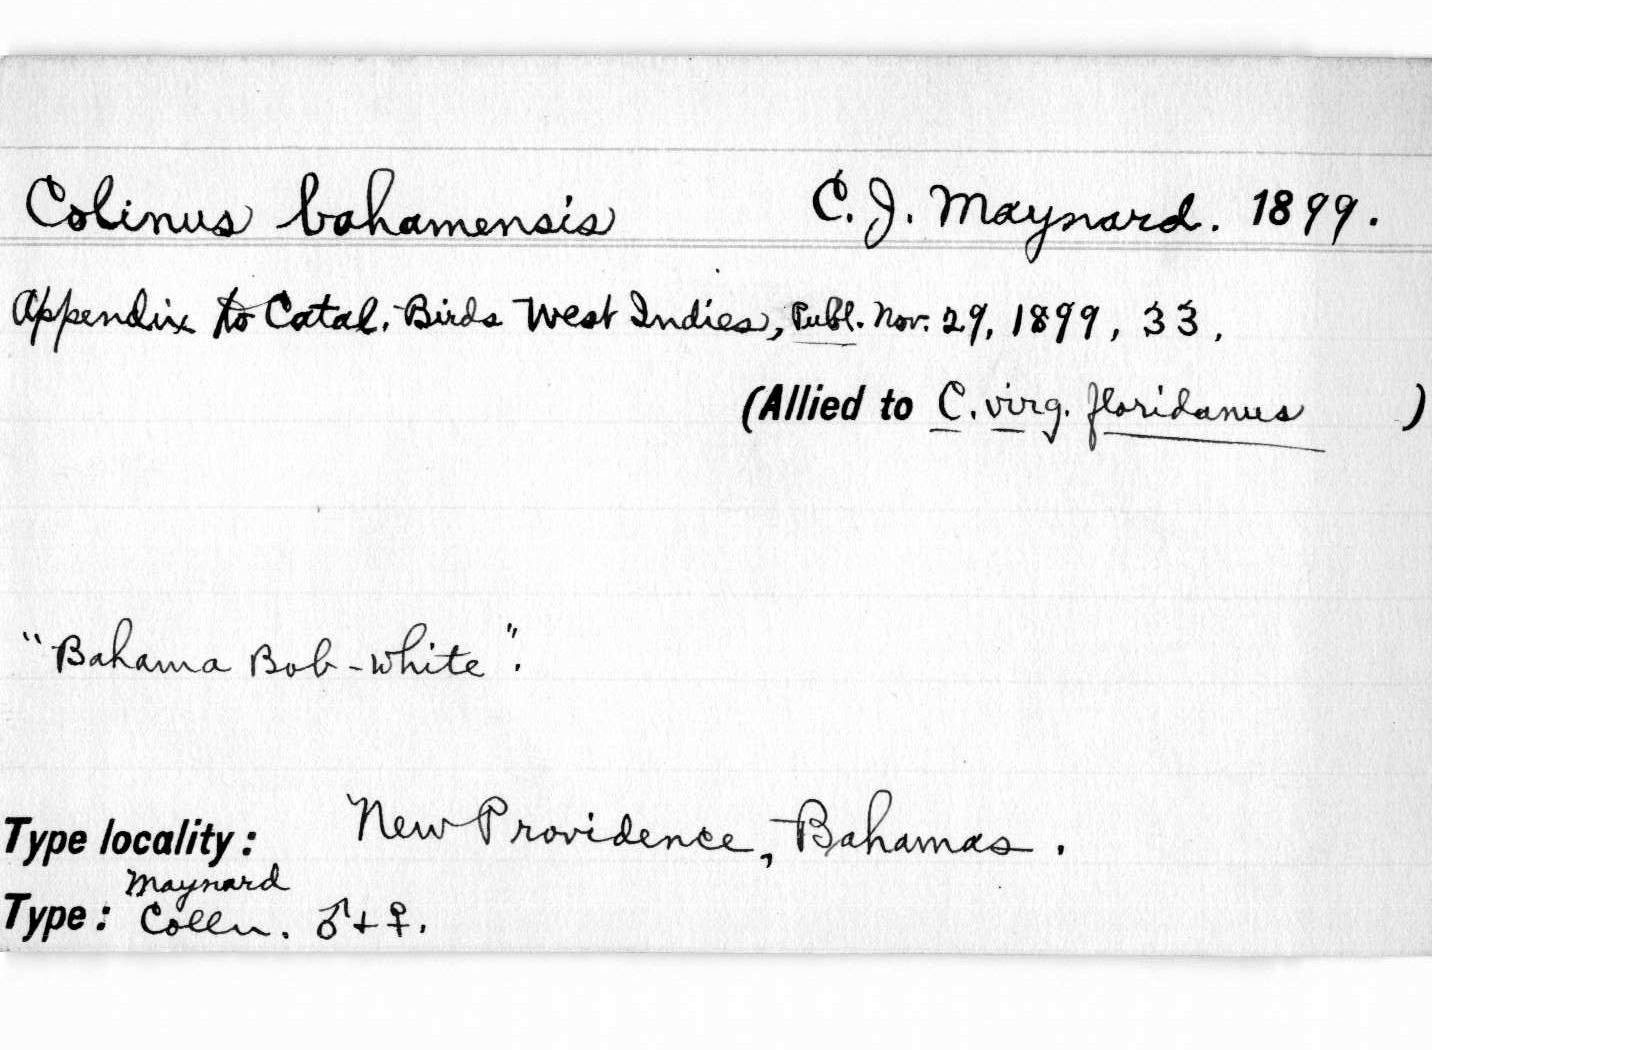 Colinus bahamensis C. J. Maynard. 1899.
Appendix to Catal. Birds West Indies, Publ. Nov. 29, 1899, 33.
(Allied to C. virg. floridanus )
"Bahama Bob-white".
Type locality: New Providence, Bahamas.
Maynard
Type: Colln. ♂+♀.